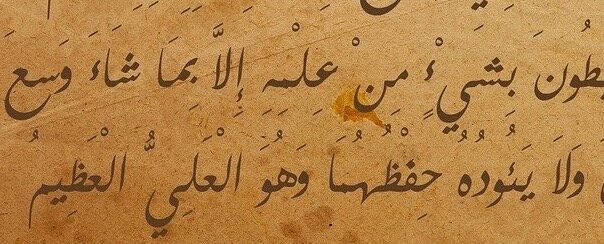 يطُونَ بِشَيْءٍ مِنْ عِلْمِهِ إِلَّا بِمَا شَاءَ وَسِعَ
وَلَا يَئُودُهُ حِفْظُهُمَا وَهُوَ الْعَلِيُّ الْعَظِيمُ